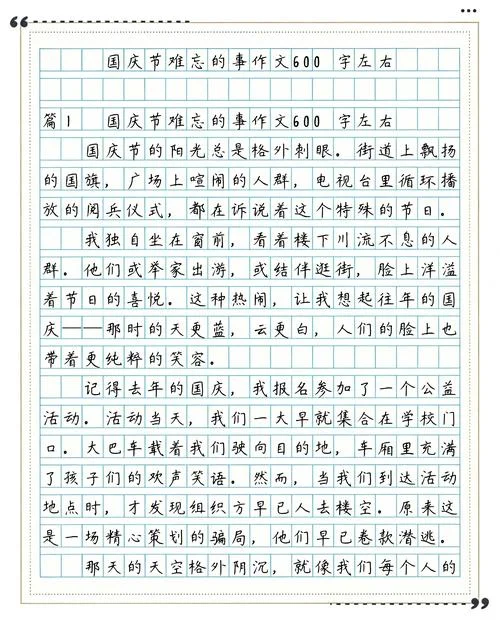 国庆节难忘的事作文600 字左右
篇1 国庆节难忘的事作文600 字左右
国庆节的阳光总是格外刺眼.街道上飘扬
的国旗,广场上喧闹的人群,电视台里循环播
放的阅兵仪式,都在诉说着这个特殊的节日.
我独自坐在窗前,看着楼下川流不息的人
群.他们或举家出游,或结伴逛街,脸上洋溢
着节日的喜悦.这种热闹,让我想起往年的国
庆——那时的天更蓝,云更白,人们的脸上也
带着更纯粹的笑容.
记得去年的国庆,我报名参加了一个公益
活动.活动当天,我们一大早就集合在学校门
口.大巴车载着我们驶向目的地,车厢里充满
了孩子们的欢声笑语.然而,当我们到达活动
地点时,才发现组织方早已人去楼空.原来这
是一场精心策划的骗局,他们早已卷款潜逃.
那天的天空格外阴沉,就像我们每个人的